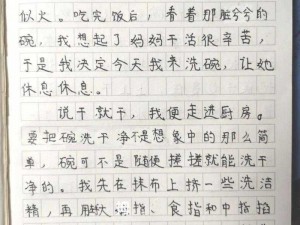 似火。吃完饭后，看着那脏兮兮的
碗，我想起了妈妈干活很辛苦，
于是我决定今天我来洗碗，让她
休息休息。
说干就干，我便走进厨房。
要把碗洗干净不是想象中的那么简
单，碗可不是随便搓搓就能洗干
净的。我先在抹布上挤一些洗洁
精，再用大拇指、食指和中指掐